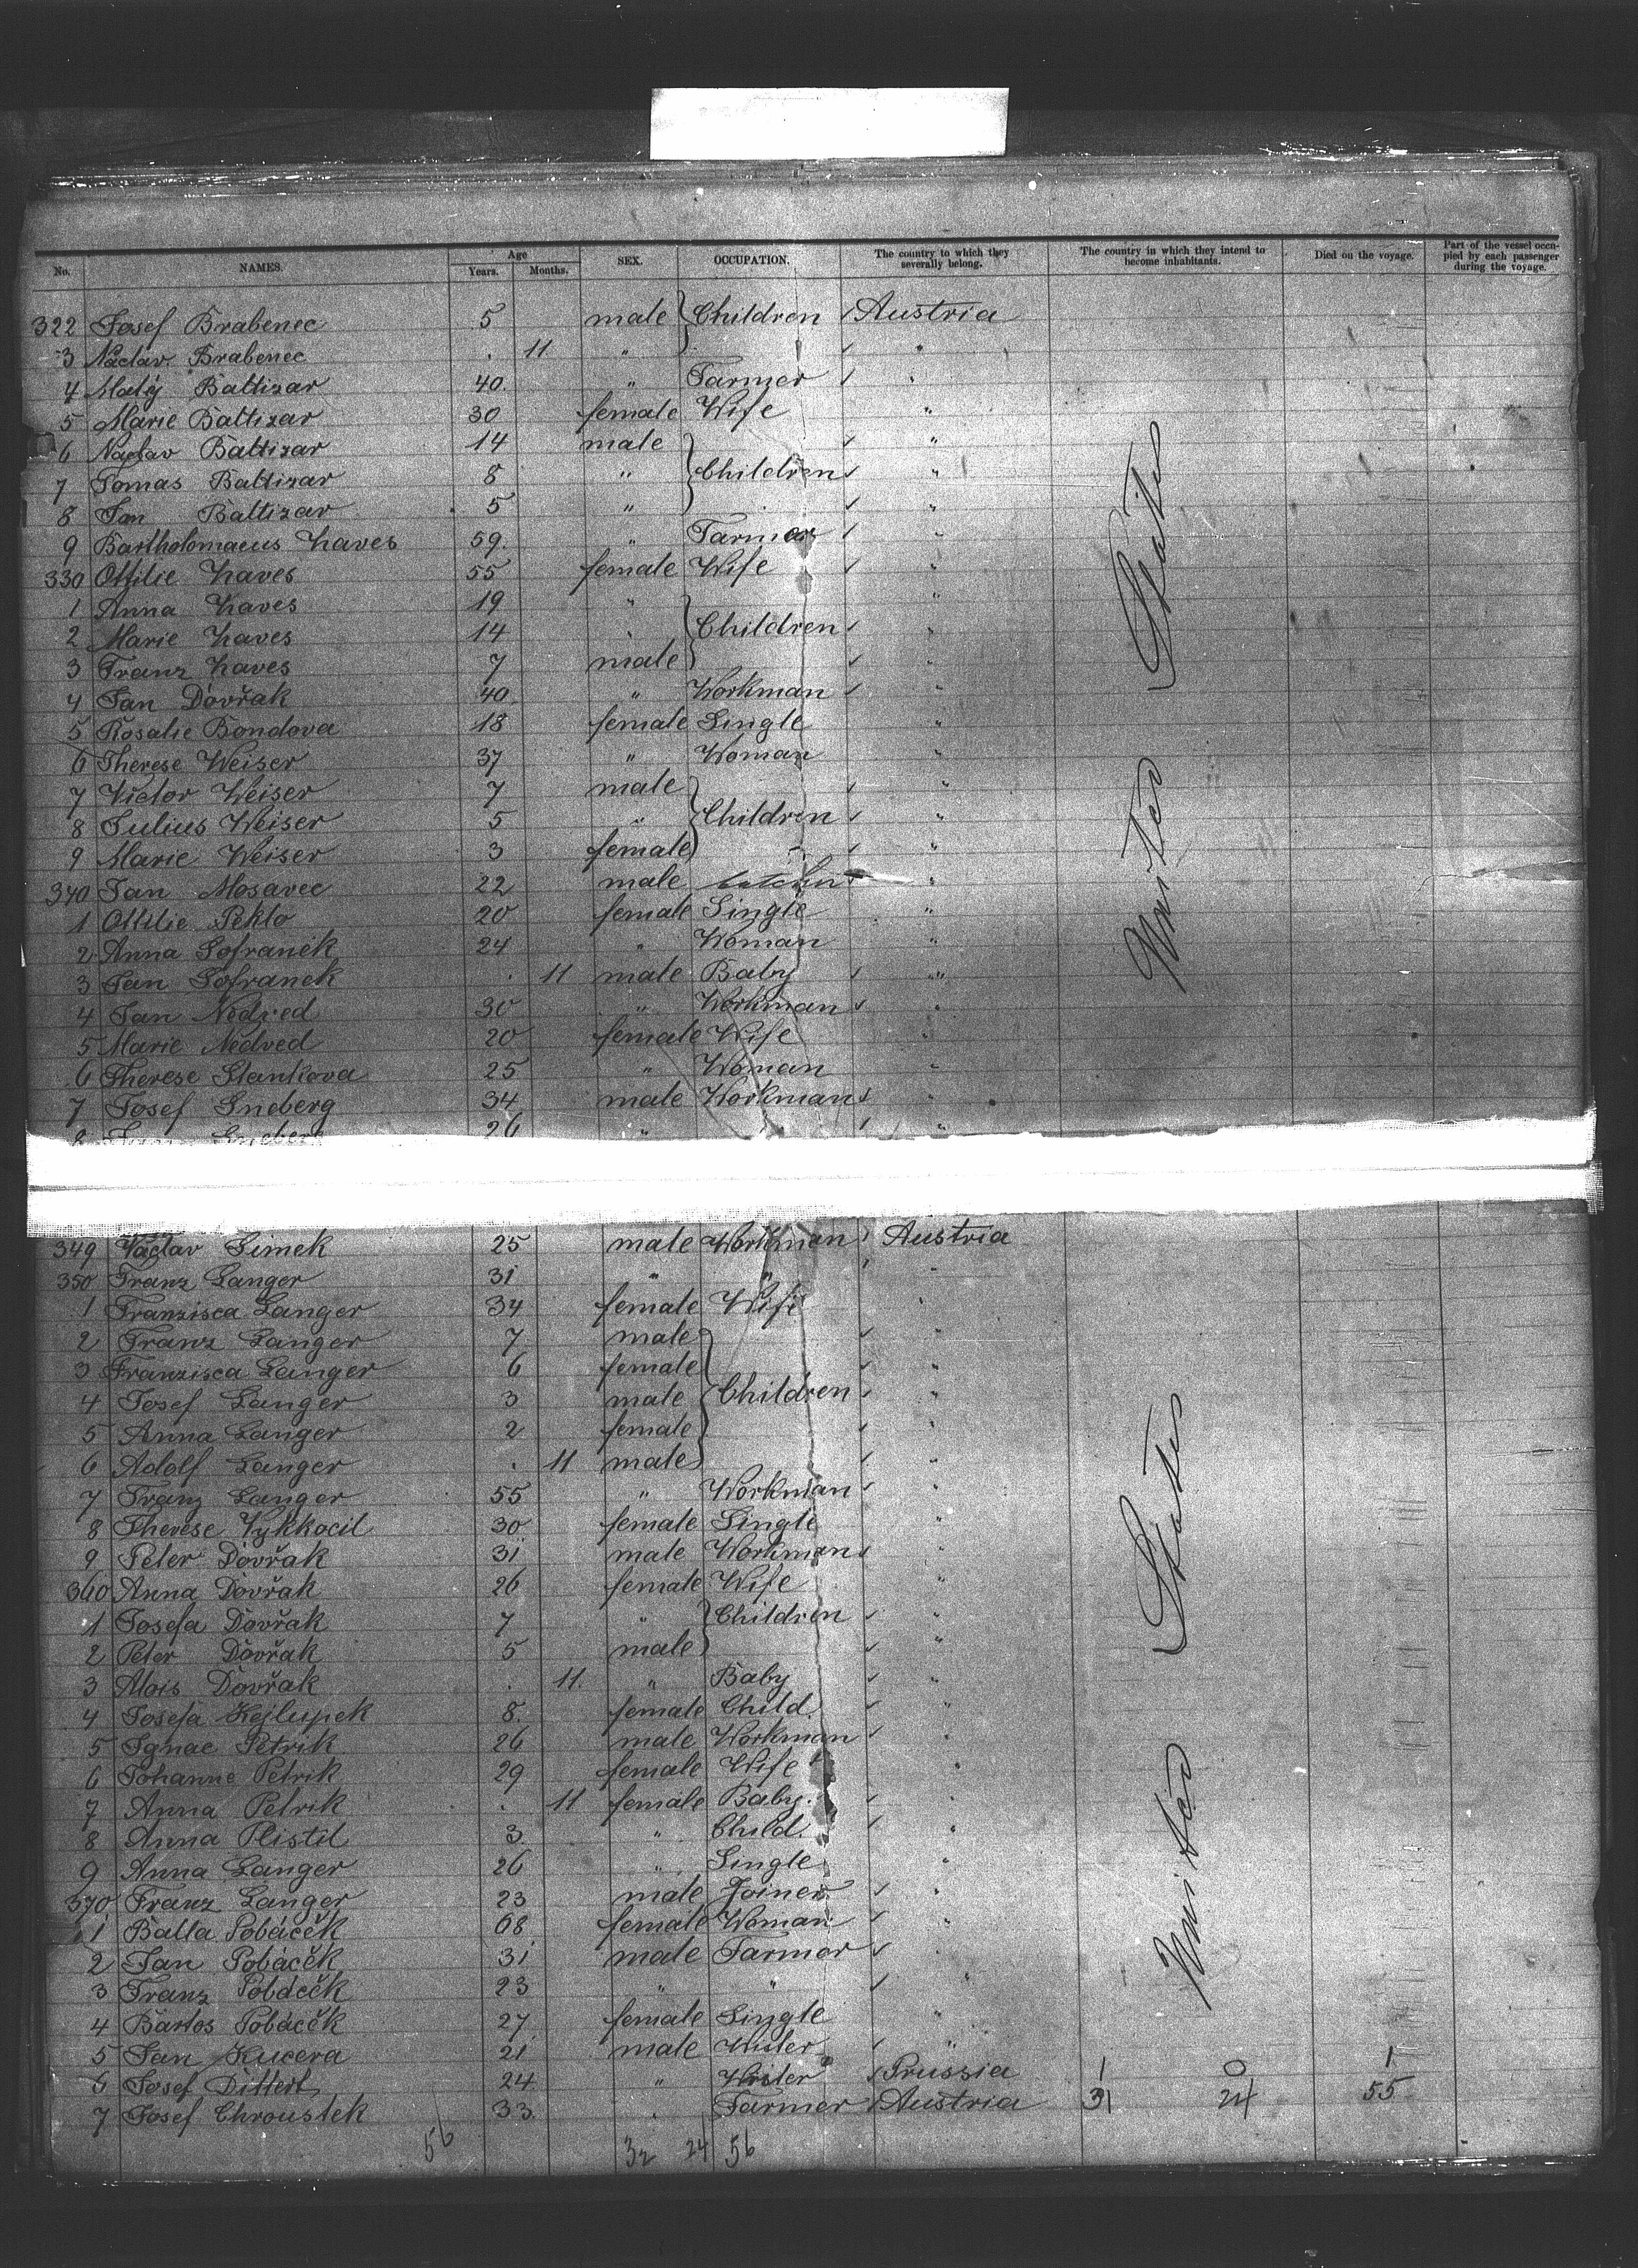 No. NAMES. Age Years. Months. SEX. OCCUPATION. The country to which they severally belong. The country in which they intend to become inhabitants. Died on the voyage. Part of the vessel occupied by each passenger during the voyage.
322 Josef Brabenec 5 male Children Austria
3 Václav Brabenec 11 "  "
4 Matý Baltizar 40 " Farmer "
5 Marie Baltizar 30 female Wife "
6 Václav Baltizar 14 male "
7 Tomas Baltizar 8 " Children "
8 Jan Baltizar 5 " "
9 Bartholomaeus Haves 59 " Farmer "
330 Ottilie Haves 55 female Wife "
1 Anna Haves 19 " "
2 Marie Haves 14 " Children "
3 Franz Haves 7 male "
4 Jan Dovřak 40 " Workman "
5 Rosalie Bondova 18 female Single "
6 Therese Weiser 37 " Woman "
7 Victor Weiser 7 male "
8 Julius Weiser 5 " Children "
9 Marie Weiser 3 female "
340 Jan Mosavec 22 male "
1 Ottilie Peklo 20 female Single "
2 Anna Sofranek 24 " Woman "
3 Jan Sofranek 11 male Baby "
4 Jan Nedved 30 " Workman "
5 Marie Nedved 20 female Wife "
6 Therese Stankova 25 " Woman "
7 Josef Sneberg 34 male Workman "
8 Sneberg 26 " "
United States
349 Václav Simek 25 male Workman Austria
350 Franz Langer 31 " " "
1 Franzisca Langer 34 female Wife "
2 Franz Langer 7 male "
3 Franzisca Langer 6 female "
4 Josef Langer 3 male Children "
5 Anna Langer 2 female "
6 Adolf Langer 11 male "
7 Franz Langer 55 " Workman "
8 Therese Vykkocil 30 female Single "
9 Peter Dovřak 31 male Workman "
360 Anna Dovřak 26 female Wife "
1 Josefa Dovřak 7 " Children "
2 Peter Dovřak 5 male "
3 Alois Dovřak 11 " Baby "
4 Josefa Kejlupek 8 female Child "
5 Ignac Petrik 26 male Workman "
6 Johanne Petrik 29 female Wife "
7 Anna Petrik 11 female Baby "
8 Anna Plistil 3 " Child "
9 Anna Langer 26 " Single "
370 Franz Langer 23 male Joiner "
1 Balla Pobáček 68 female Woman "
2 Jan Pobáček 31 male Farmer "
3 Franz Pobáček 23 " " "
4 Bartos Pobáček 27 female Single "
5 Jan Kucera 21 male "
6 Josef Dittert 24 " Prussia 1 0 1
7 Josef Chroustek 33 " Farmer Austria 31 24 55
United States
56 32 24 56